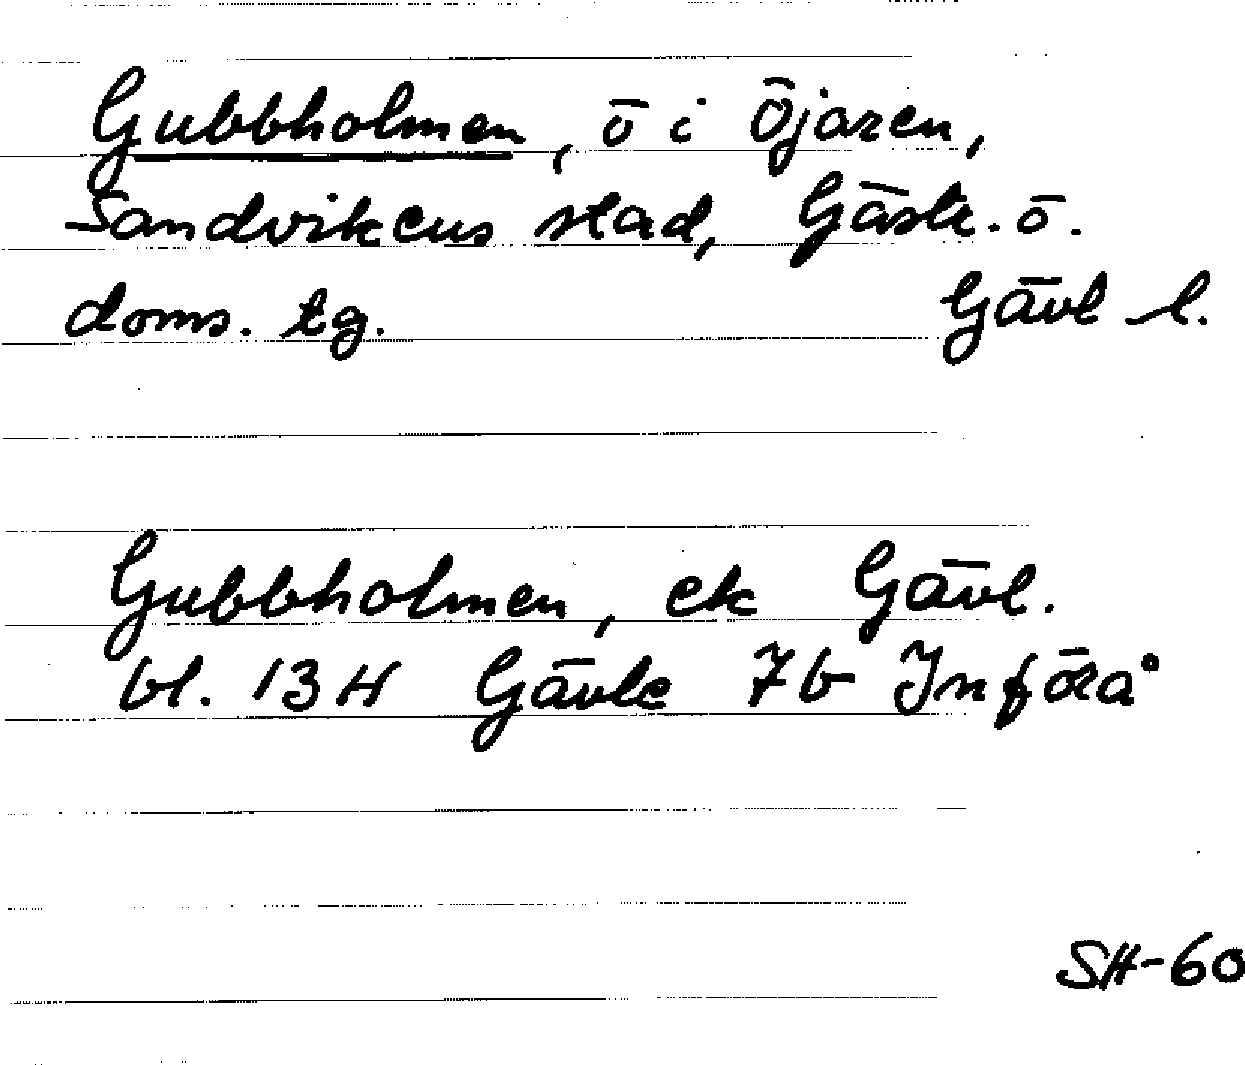 Gubbholmen, ö i Öjaren,
Sandvikens stad, Gästr. ö.
doms. tg. Gävl l.
Gubbholmen, ek Gävl.
bl. 13H Gävle 7b Införå
SH-60